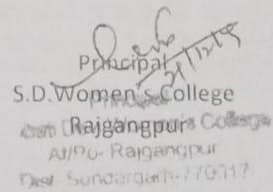 Principal
21/12/19
S.D.Women's College
Rajgangpur
Principal
College
At/Po- Rajgangpur
Dist- Sundargarh-770017